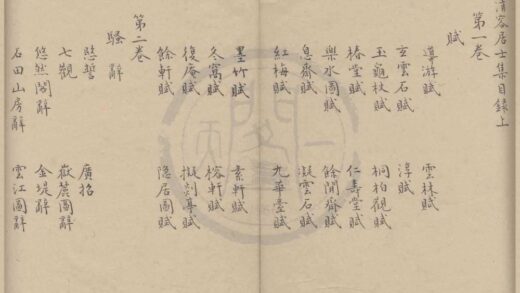 清容居士集目錄上
第一卷
賦
導游賦 雲林賦
玄雲石賦 淳賦
玉龜杖賦 桐柏觀賦
椿堂賦 仁壽堂賦
樂水圖賦 餘閒齋賦
息齋賦 凝雲石賦
紅梅賦 九華臺賦
墨竹賦 素軒賦
冬窩賦 榕軒賦
復庵賦 擬剡亭賦
餘軒賦 隱居圖賦
第二卷
騷辭
愍誓 廣招
七觀 嶽麓圖辭
悠然閣辭 金堤辭
石田山房辭 雲江圖辭